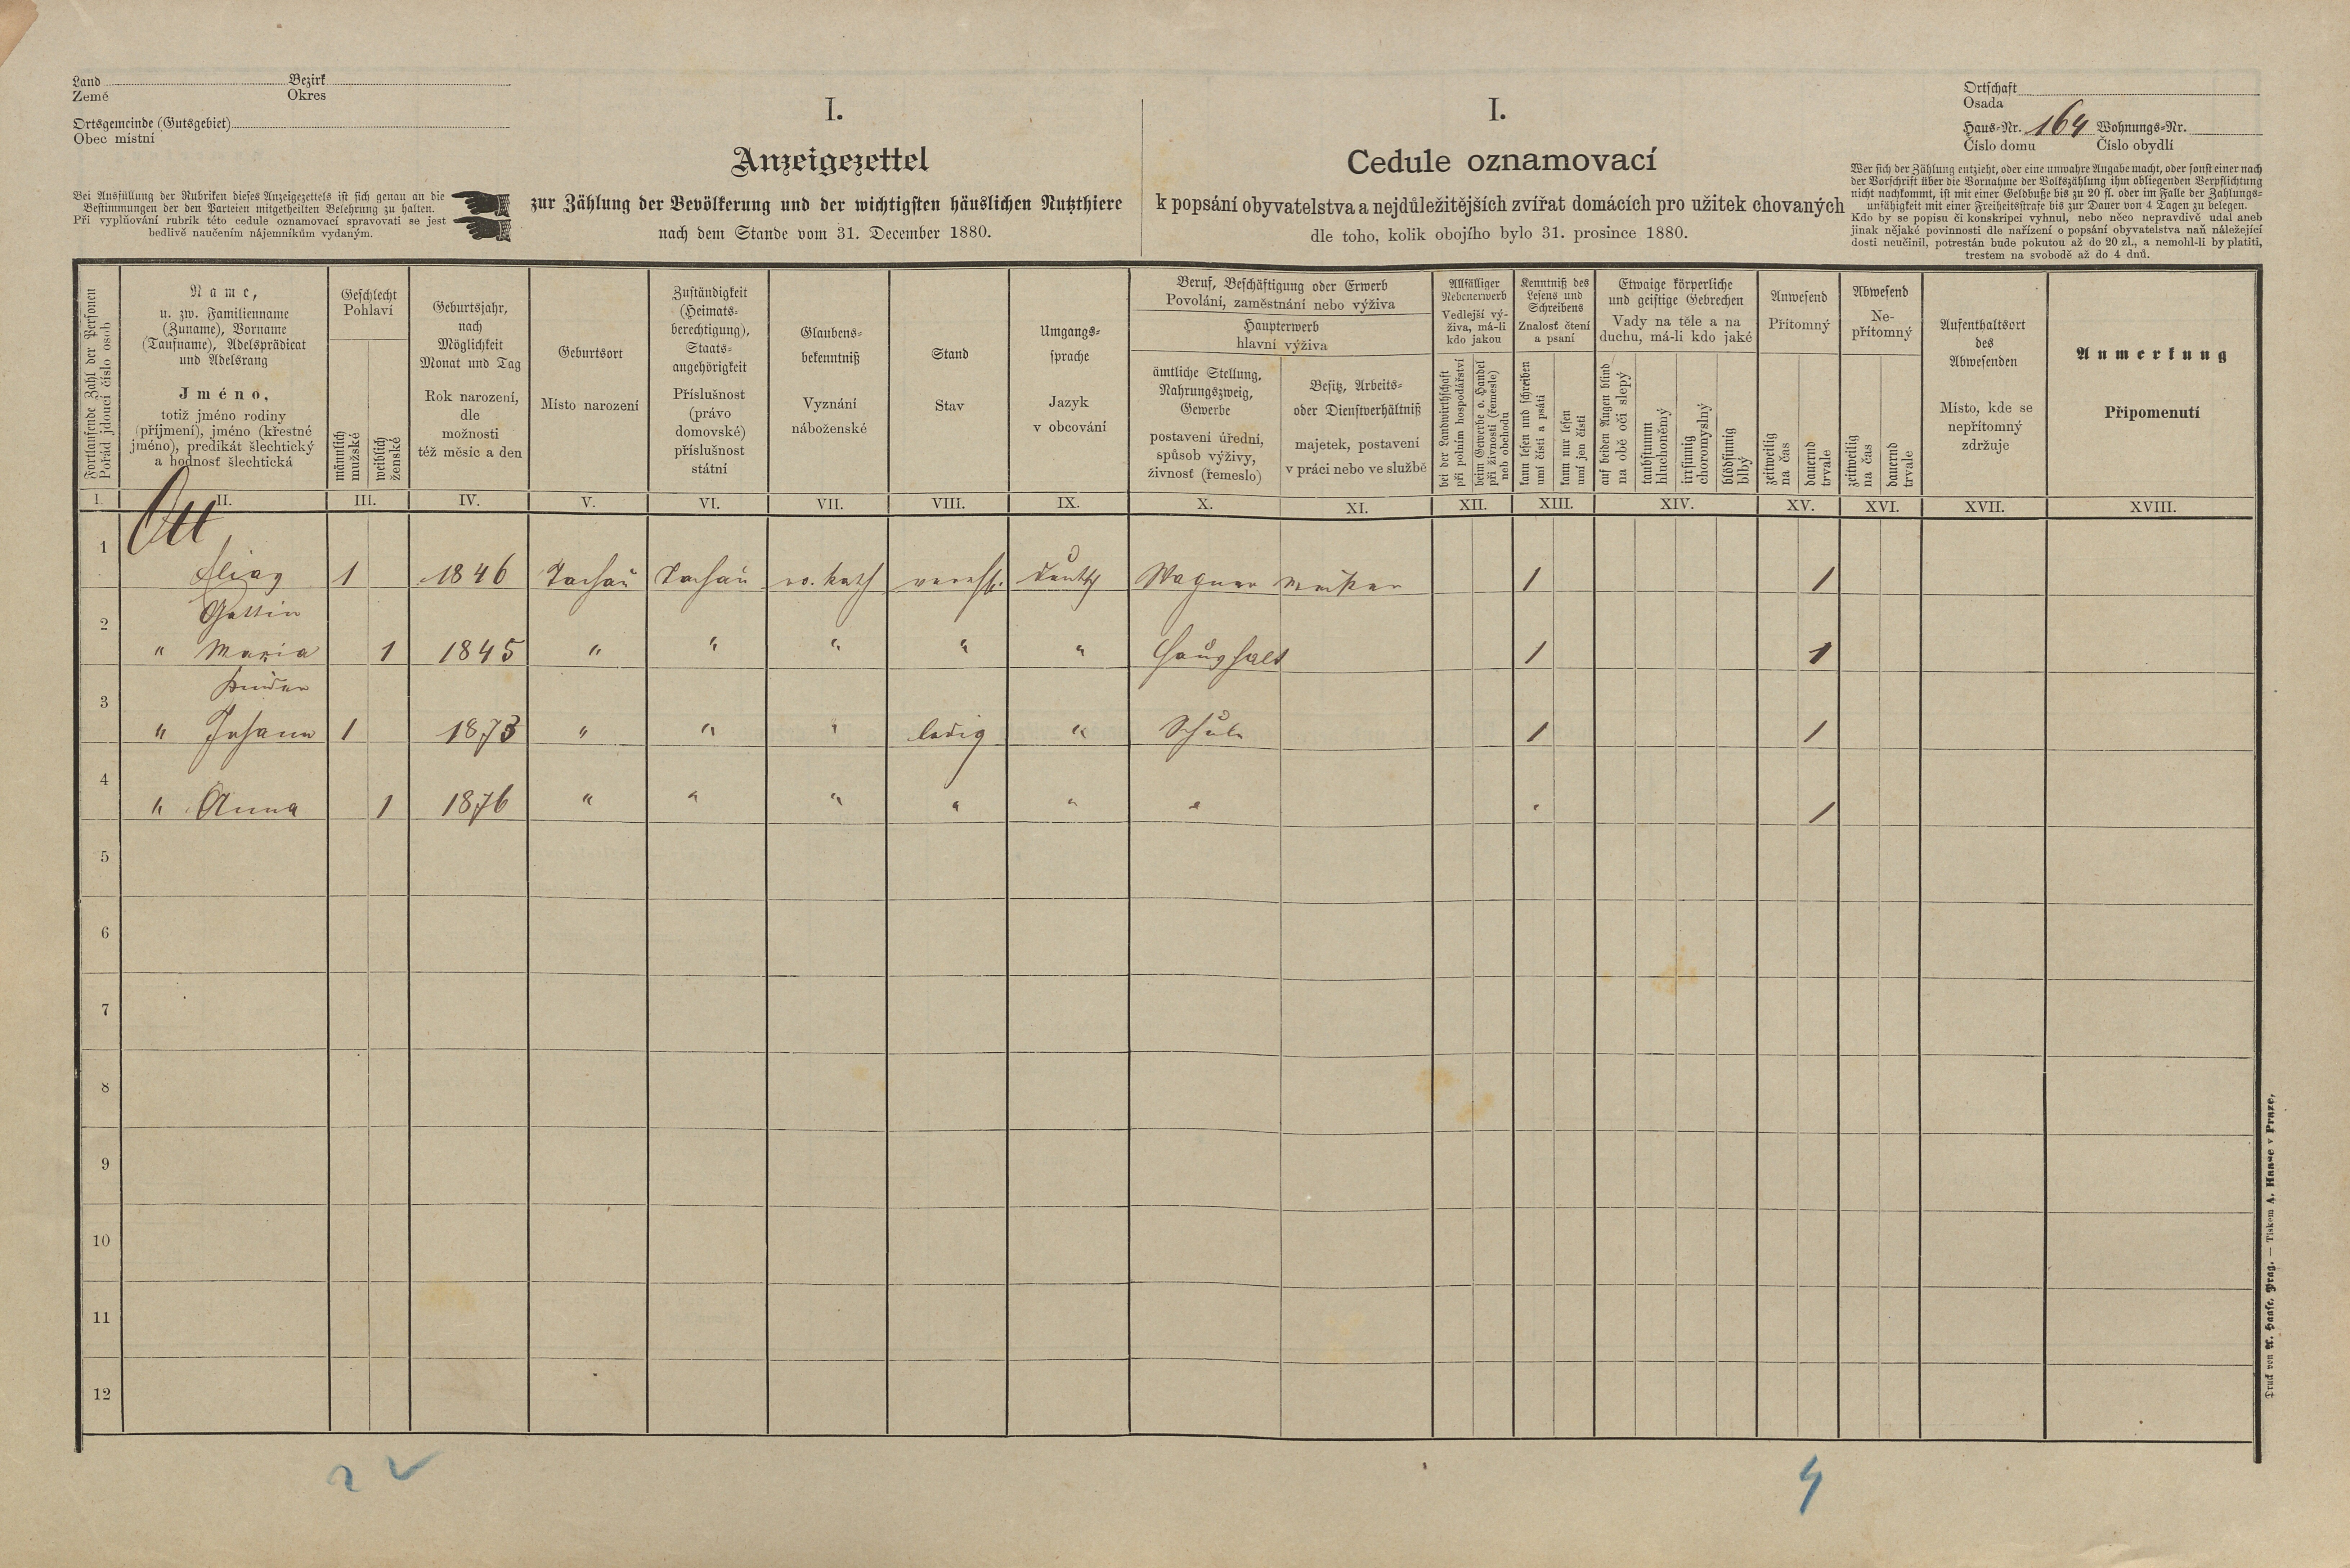 Land Bezirk
Země Okres
Ortsgemeinde (Gutsgebiet)
Obec místní
Bei Ausfüllung der Rubriken dieses Anzeigezettels ist sich genau an die
Bestimmungen der den Parteien mitgetheilten Belehrung zu halten.
Při vyplňování rubrik této cedule oznamovací spravovati se jest
bedlivě naučením nájemníkům vydaným.
I.
Anzeigezettel
zur Zählung der Bevölkerung und der wichtigsten häuslichen Nutzthiere
nach dem Stande vom 31. December 1880.
I.
Cedule oznamovací
k popsání obyvatelstva a nejdůležitějších zvířat domácích pro užitek chovaných
dle toho, kolik obojího bylo 31. prosince 1880.
Ortschaft
Osada
Haus-Nr. 164 Wohnungs-Nr.
Číslo domu Číslo obydlí
Wer sich der Zählung entzieht, oder eine unwahre Angabe macht, oder sonst einer nach
der Vorschrift über die Vornahme der Volkszählung ihm obliegenden Verpflichtung
nicht nachkommt, ist mit einer Geldbuße bis zu 20 fl. oder im Falle der Zahlungs-
unfähigkeit mit einer Freiheitsstrafe bis zur Dauer von 4 Tagen zu belegen.
Kdo by se popisu či konskripci vyhnul, nebo něco nepravdivě udal aneb
jinak nějaké povinnosti dle nařízení o popsání obyvatelstva naň náležející
dosti neučinil, potrestán bude pokutou až do 20 zl., a nemohl-li by platiti,
trestem na svobodě až do 4 dnů.
Fortlaufende Zahl der Personen
Pořád jdoucí číslo osob
Name,
u. zw. Familienname
(Zuname), Vorname
(Taufname), Adelsprädicat
und Adelsrang
Jméno,
totiž jméno rodiny
(příjmení), jméno (křestné
jméno), predikát šlechtický
a hodnosť šlechtická
Geschlecht
Pohlaví
männlich
mužské
weiblich
ženské
Geburtsjahr,
nach
Möglichkeit
Monat und Tag
Rok narození,
dle
možnosti
též měsíc a den
Geburtsort
Místo narození
Zuständigkeit
(Heimats-
berechtigung),
Staats-
angehörigkeit
Příslušnost
(právo
domovské)
příslušnost
státní
Glaubens-
bekenntniß
Vyznání
náboženské
Stand
Stav
Umgangs-
sprache
Jazyk
v obcování
Beruf, Beschäftigung oder Erwerb
Povolání, zaměstnání nebo výživa
Haupterwerb
hlavní výživa
ämtliche Stellung,
Nahrungszweig,
Gewerbe
postavení úřední,
spůsob výživy,
živnosť (řemeslo)
Besitz, Arbeits-
oder Dienstverhältniß
majetek, postavení
v práci nebo ve službě
Allfälliger
Nebenerwerb
Vedlejší vý-
živa, má-li
kdo jakou
bei der Landwirthschaft
při polním hospodářství
beim Gewerbe o. Handel
při živnosti (řemesle)
neb obchodu
Kenntniß des
Lesens und
Schreibens
Znalosť čtení
a psaní
kann lesen und schreiben
umí čísti a psáti
kann nur lesen
umí jen čísti
Etwaige körperliche
und geistige Gebrechen
Vady na těle a na
duchu, má-li kdo jaké
auf beiden Augen blind
na obě oči slepý
taubstumm
hluchoněmý
irrsinnig
choromyslný
blödsinnig
blbý
Anwesend
Přítomný
zeitweilig
na čas
dauernd
trvale
Abwesend
Ne-
přítomný
zeitweilig
na čas
dauernd
trvale
Aufenthaltsort
des
Abwesenden
Místo, kde se
nepřítomný
zdržuje
Anmerkung
Připomenutí
I. II. III. IV. V. VI. VII. VIII. IX. X. XI. XII. XIII. XIV. XV. XVI. XVII. XVIII.
Ott
1 Elias 1 1846 Tachau Tachau ro. kath vereh. deutsch Wagner Meister 1 1
Gattin
2 " Maria 1 1845 " " " " " Haushalt 1 1
Kinder
3 " Johann 1 1873 " " " ledig " Schule 1 1
4 " Anna 1 1876 " " " " " " " 1
5
6
7
8
9
10
11
12
2 4
Druck von A. Haase, Prag. — Tiskem A. Haase v Praze.